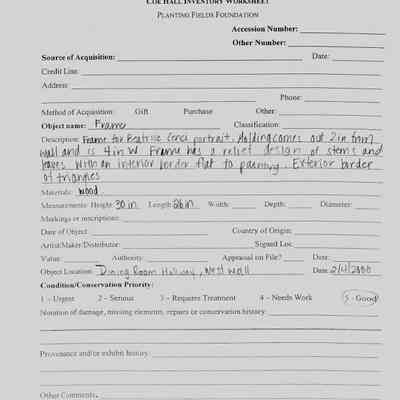 COE HALL INVENTORY WORKSHEET
PLANTING FIELDS FOUNDATION
Accession Number:
Other Number:
Source of Acquisition: Date:
Credit Line:
Address:
Phone:
Method of Acquisition: Gift Purchase Other:
Object name: Frame Classification:
Description: Frame for Beatrice Cenci portrait. Molding comes out 2in from
wall and is 4in W. Frame has a relief design of stems and
leaves with an interior border flat to painting. Exterior border
of triangles
Materials: wood
Measurements: Height: 30 in. Length: 26 in. Width: Depth: Diameter:
Markings or inscriptions:
Date of Object: Country of Origin:
Artist/Maker/Distributor: Signed Loc:
Value: Authority: Appraisal on File? Date:
Object Location: Dining Room Hallway, West wall Date: 2/4/2000
Condition/Conservation Priority:
1 - Urgent 2 - Serious 3 - Requires Treatment 4 - Needs Work 5 - Good
Notation of damage, missing elements, repairs or conservation history:
Provenance and/or exhibit history:
Other Comments: